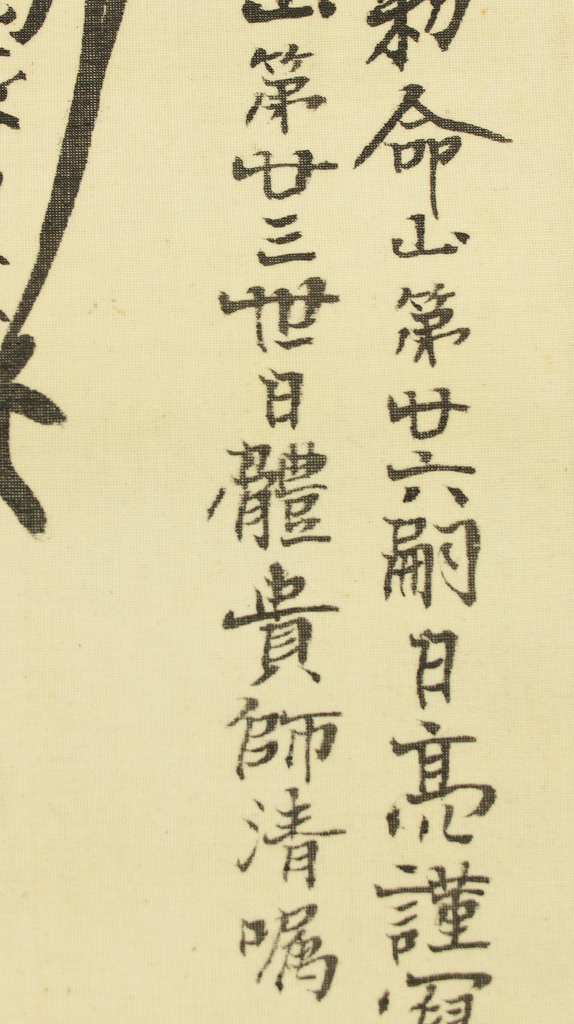 勅命山第廿六嗣日亮謹寫
山第廿三世日體貴師清嘱